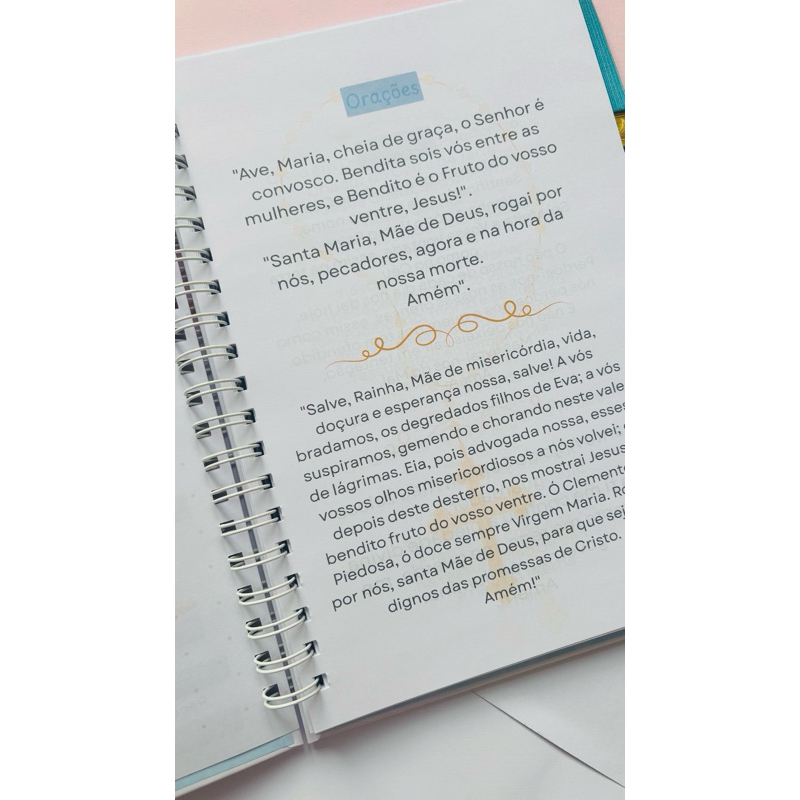 Orações
"Ave, Maria, cheia de graça, o Senhor é
convosco. Bendita sois vós entre as
mulheres, e Bendito é o Fruto do vosso
ventre, Jesus!".
"Santa Maria, Mãe de Deus, rogai por
nós, pecadores, agora e na hora da
nossa morte.
Amém".
"Salve, Rainha, Mãe de misericórdia, vida,
doçura e esperança nossa, salve! A vós
bradamos, os degredados filhos de Eva; a vós
suspiramos, gemendo e chorando neste vale
de lágrimas. Eia, pois advogada nossa, esses
vossos olhos misericordiosos a nós volvei;
depois deste desterro, nos mostrai Jesus
bendito fruto do vosso ventre. Ó Clemente
Piedosa, ó doce sempre Virgem Maria.
por nós, santa Mãe de Deus, para que
dignos das promessas de Cristo.
Amém!"